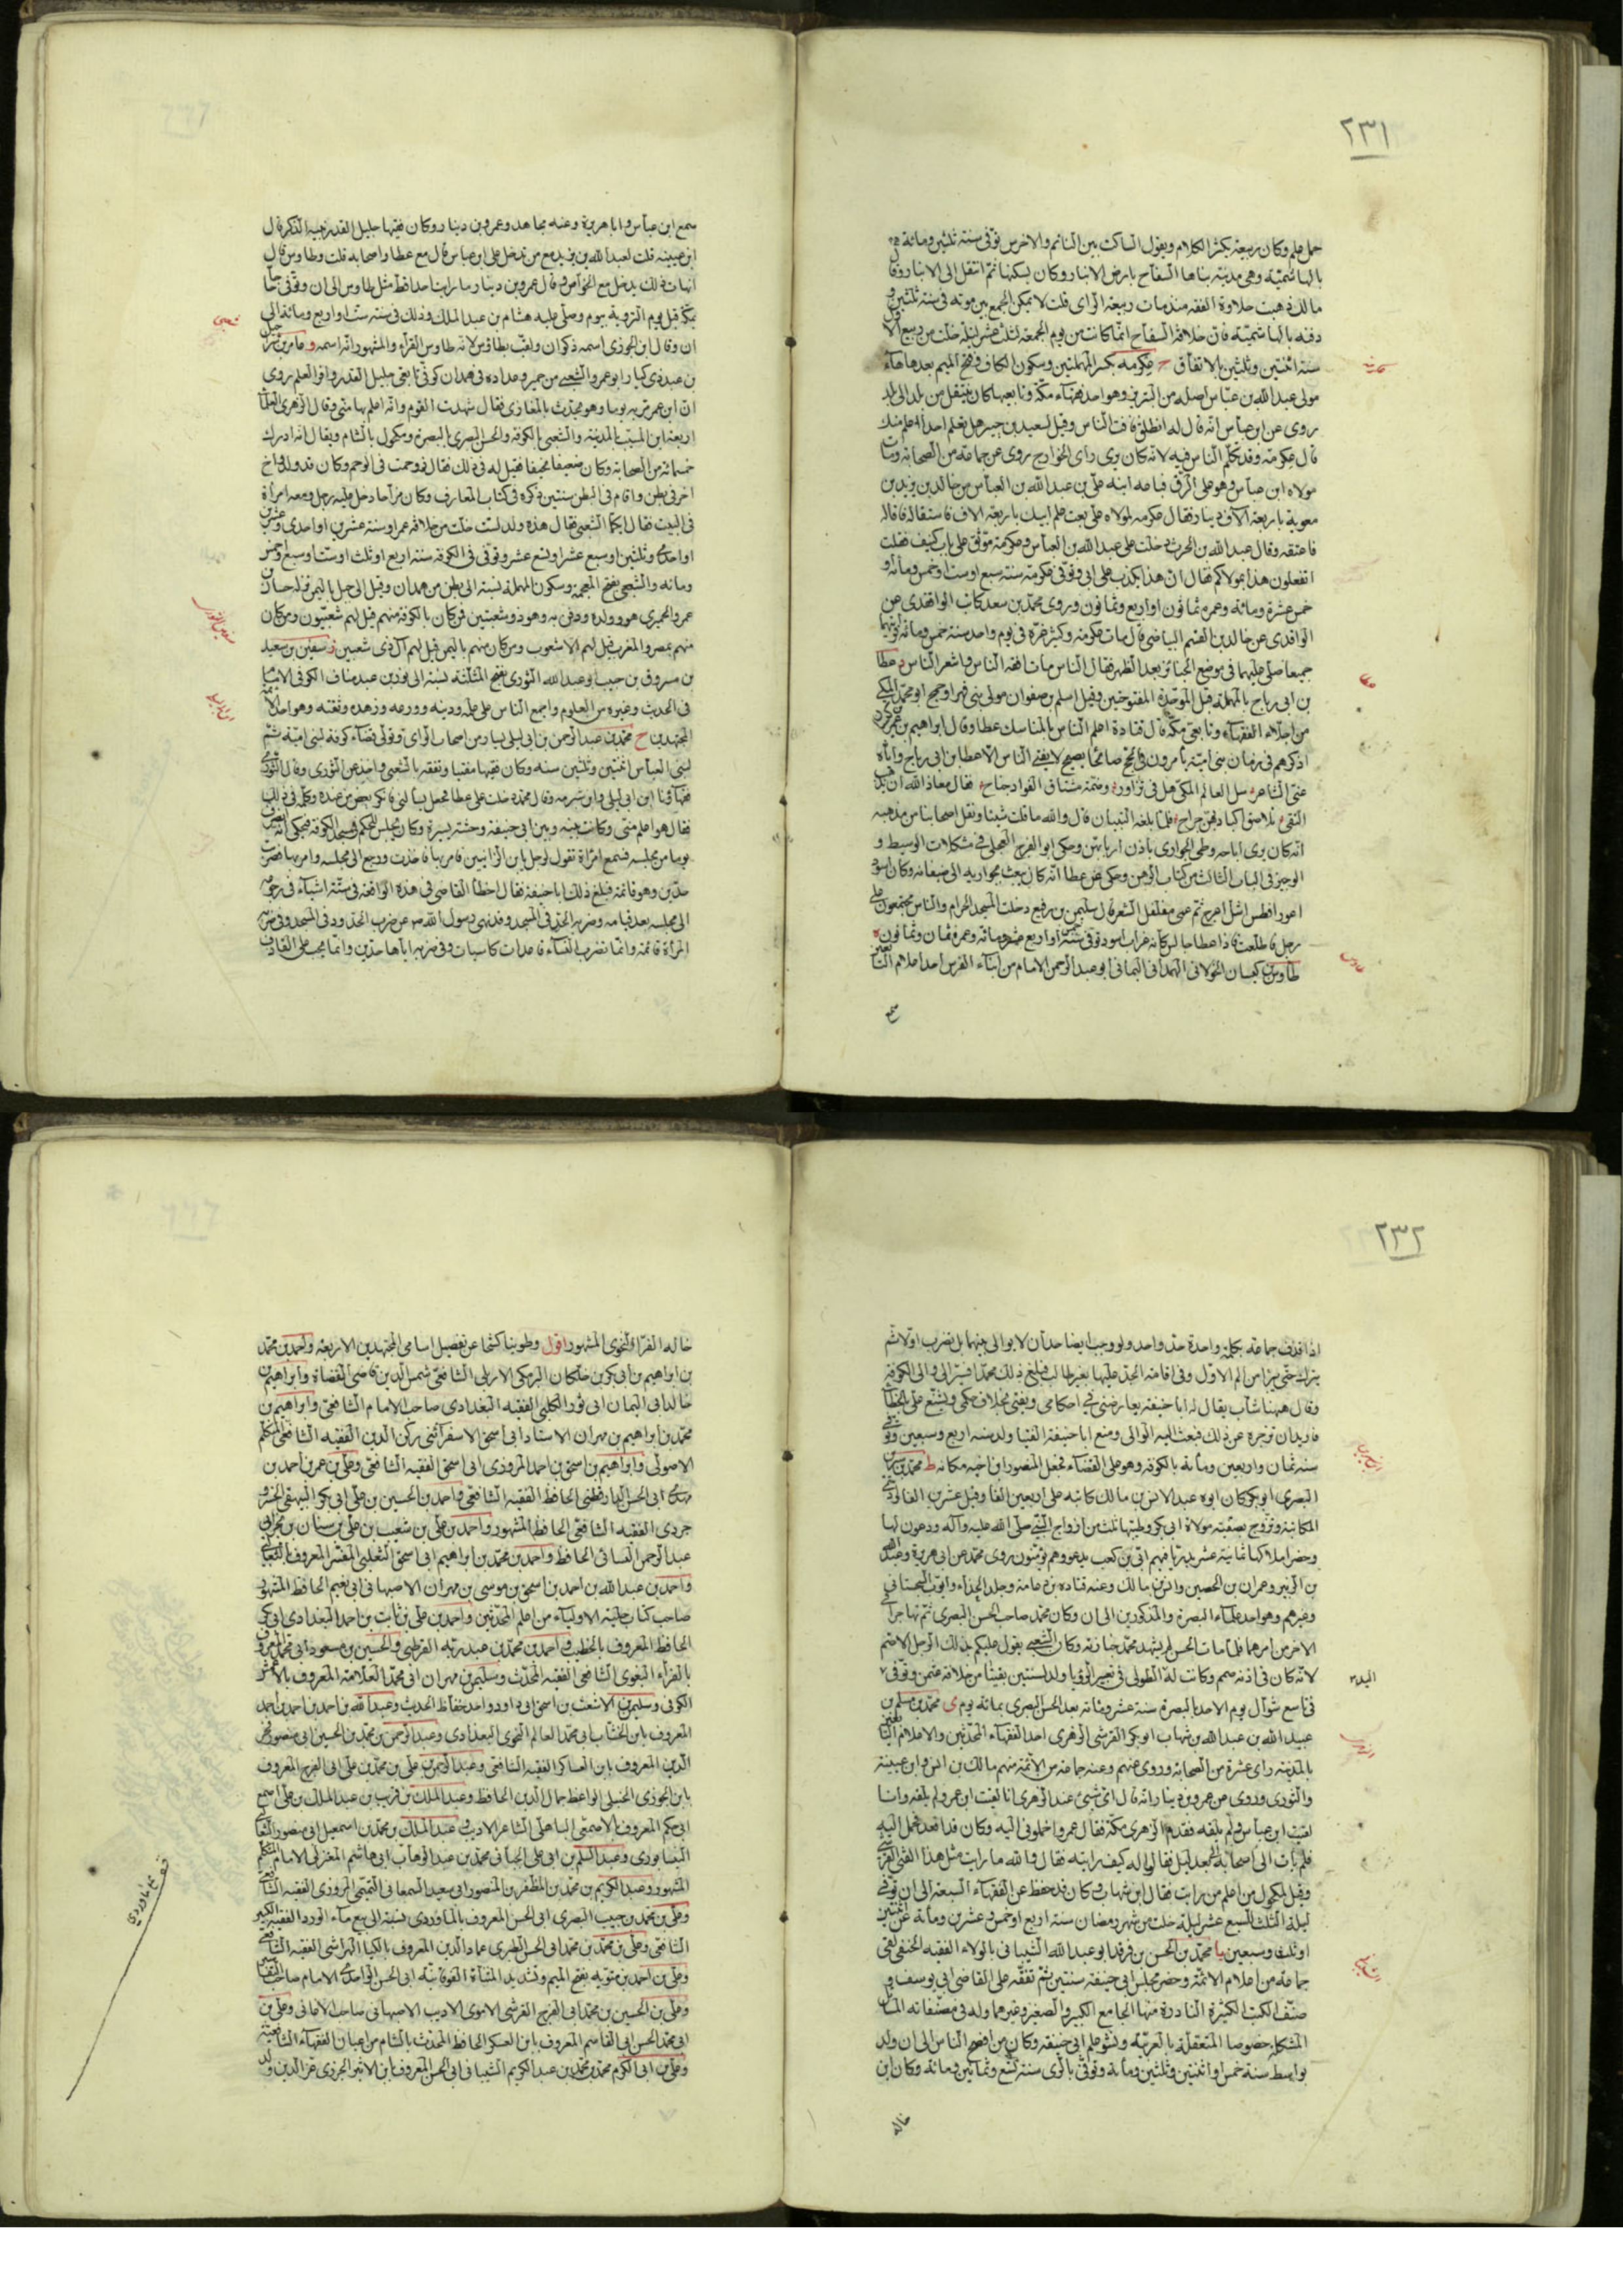 ٢٣١
حمل علم وكان ربيعة يكثر الكلام ويقول الساكت بين النائم والاخرس توفى سنة ثلثين ومائة
بالهاشمية وهى مدينة بناها السفاح بارض الانبار وكان يسكنها ثم انتقل الى الانبار وقال
مالك ذهبت حلاوة الفقه منذ مات ربيعة الراى قلت لا يمكن الجمع بين موته فى سنة ثلثين و
دفنه بالهاشمية فان خلافة السفاح انما كانت من يوم الجمعة لثلث عشر ليلة خلت من ربيع الاول
سنة اثنتين وثلثين بالاتفاق ح عكرمه بكسر المهملتين وسكون الكاف وفتح الميم بعدها هاء
مولى عبد الله بن عباس اصله من البربر وهو احد فقهاء مكة وتابعيها كان ينتقل من بلد الى بلد
روى عن ابن عباس انه قال له انطلق فافت الناس وقيل لسعيد بن جبير هل تعلم احدا اعلم منك
قال عكرمة وقد تكلم الناس فيه لانه كان يرى راى الخوارج روى عن جماعة من الصحابة ومات
مولاه ابن عباس وهو على الرق فباعه ابنه على بن عبد الله بن العباس من خالد بن يزيد بن
معوية باربعة الاف دينار فقال عكرمه لمولاه على بعت علم ابيك باربعة الاف فاستقاله فاقاله
فاعتقه وقال عبد الله بن الحرث دخلت على عبد الله بن العباس وعكرمة موثق على باب كنيف فقلت
اتفعلون هذا بمولاكم فقال ان هذا يكذب على ابى وتوفى عكرمة سنة سبع اوست او خمس ومائة و
خمس عشرة ومائة وعمره ثمانون او اربع وثمانون وروى محمد بن سعد كاتب الواقدى عن
الواقدى عن خالد بن القسم البياضى قال مات عكرمة وكثير عزة فى يوم واحد سنة خمس ومائة
جميعا صلى عليهما فى موضع الجنائز بعد الظهر فقال الناس مات افقه الناس واشعر الناس د عطا
بن ابى رباح بالمهملة قبل الموحدة المفتوحتين وقيل اسلم بن صفوان مولى بنى فهر او جمح ابو محمد المكى
من اجلاء الفقهاء وتابعى مكة قال قتادة اعلم الناس بالمناسك عطا وقال ابراهيم بن عمر
اذكرهم فى زمان بنى امية يامرون فى الحج صائحا يصيح لا يفتى الناس الا عطا بن ابى رباح واياه
عنى الشاعر سل العالم المكى هل فى تزاور وضمة مشتاق الفواد جناح فقال معاذ الله ان يذهب
التقى تلاصق اكباد بهن جراح فلما بلغه البيتان قال والله ما قلت شيئا ونقل اصحابنا من مذهبه
انه كان يرى اباحة وطى الجوارى باذن اربابهن وحكى ابو الفرج العجلى فى مشكلات الوسيط و
الوجيز فى الباب الثالث من كتاب الرهن وحكى عن عطا انه كان يبعث بجواريه الى ضيفانه وكان اسود
اعور افطس اشل اعرج ثم عمى مفلفل الشعر قال سليمن بن رفيع دخلت المسجد الحرام والناس مجتمعون على
رجل فاطلعت فاذا عطا جالس كانه غراب اسود توفى سنة او اربع عشرة ومائة وعمره ثمان وثمانون
طاوس بن كيسان الخولانى الهمدانى اليمانى ابو عبد الرحمن الامام من ابناء الفرس احد اعلام التابعين
سمع
عكرمة
عطا
طاوس
سمع ابن عباس وابا هريرة وعنه مجاهد وعمرو بن دينار وكان فقيها جليل القدر نبيه الذكر قال
ابن عيينه قلت لعبد الله بن يزيد مع من تدخل على ابن عباس قال مع عطا واصحابه قلت وطاوس قال
ايهات ذلك يدخل مع الخواص وقال عمرو بن دينار ما راينا احدا قط مثل طاوس الى ان وتوفى حاجا
بمكة قبل يوم التروية بيوم وصلى عليه هشام بن عبد الملك وذلك فى سنة ست او اربع ومائة الى
ان وقال ابن الجوزى اسمه ذكوان ولقب بطاوس لانه طاوس القرآء والمشهور انه اسمه و عامر بن شرحبيل
بن عبد ذى كبار ابو عمرو الشعبى من حمير وعداده فى همدان كوفى تابعى جليل القدر وافر العلم روى
ان ابن عمر مر به يوما وهو يحدث بالمغازى فقال شهدت القوم وانه اعلم بها منى وقال الزهرى العلماء
اربعة ابن المسيب بالمدينة والشعبى بالكوفة والحسن البصرى بالبصرة ومكحول بالشام ويقال انه ادرك
خمسمائة من الصحابة وكان ضعيفا نحيفا فقيل له فى ذلك فقال زوحمت فى الرحم وكان قد ولد واخ
اخر فى بطن واقام فى البطن سنتين ذكره فى كتاب المعارف وكان مزاحا دخل عليه رجل ومعه امراة
فى البيت فقال ايكما الشعبى فقال هذه ولد لست خلت من خلافة عمر او سنة عشرين او احدى وعشرين
او احدى وثلثين او سبع عشر او تسع عشر وتوفى فى الكوفة سنة اربع او ثلث او ست او سبع او خمس
ومائة والشعبى بفتح المعجمة وسكون المهملة نسبة الى بطن من همدان وقيل الى جبل باليمن نزله حسان بن
عمرو الحميرى هو وولده ودفن به وهو ذو شعبتين فمن كان بالكوفة منهم قيل لهم شعبيون ومن كان
منهم بمصر والمغرب قيل لهم الاشعوب ومن كان منهم باليمن قيل لهم آل ذى شعبين ز سفين بن سعيد
بن مسروق بن حبيب ابو عبد الله الثورى بفتح المثلثة نسبة الى ثور بن عبد مناف الكوفى الامام
فى الحديث وغيره من العلوم واجمع الناس على علمه ودينه وورعه وزهده وثقته وهو احد الائمة
المجتهدين ح محمد بن عبد الرحمن بن ابى ليلى يسار من اصحاب الراى وتولى قضاء كوفة لبنى امية ثم
لبنى العباس اثنتين وثلثين سنه وكان فقيها مفتيا وتفقه بالشعبى واخذ عن الثورى وقال الثورى
فقهآؤنا ابن ابى ليلى وابن شبرمه وقال محمد دخلت على عطا فجعل يسالنى فانكر بعض من عنده وكلمه فى ذلك
فقال هو اعلم منى وكانت بينه وبين ابى حنيفة وحشة يسيرة وكان يجلس للحكم فى مسجد الكوفة فيحكى انه انصرف
يوما من مجلسه فسمع امراة تقول لرجل يا ابن الزانيين فامر بها فاخذت ورجع الى مجلسه وامر بها فضربت
حدين وهو قائمة فبلغ ذلك ابا حنيفة فقال اخطا القاضى فى هذه الواقعة فى ستة اشياء فى رجوعه
الى مجلسه بعد قيامه وضربه الحد فى المسجد وقد نهى رسول الله ص عن ضرب الحدود فى المسجد وفى ضربه
المراة قائمة وانما تضرب النساء قاعدات كاسيات وفى ضربه اياها حدين وانما يجب على القاذف
شعبى
سفين الثورى
٢٣٢
اذا قذف جماعة بكلمة واحدة حد واحد ولو وجب ايضا حدان لا يوالى بينهما بل يضرب اولا ثم
يترك حتى يبرا من الم الاول وفى اقامة الحد عليها بغير طالب فبلغ ذلك محمدا فسير الى والى الكوفة
وقال ههنا شاب يقال له ابا حنيفة يعارضنى فى احكامى ويفتى بخلاف حكمى ويشنع على بالخطا
فاريد ان تزجره عن ذلك فبعث اليه الوالى ومنع ابا حنيفة الفتيا ولد سنة اربع وسبعين وتوفى
سنة ثمان واربعين ومائة بالكوفة وهو على القضاء فجعل المنصور ابن اخيه مكانه ط محمد بن سيرين
البصرى ابو بكر كان ابوه عبدا لانس بن مالك كاتبه على اربعين الفا وقيل عشرين الفا
المكاتبة وتزوج بصفية مولاة ابى بكر وطيبها ثلث من ازواج النبى صلى الله عليه وآله ودعون لها
وحضر املاكها ثمانية عشر بدريا فيهم ابى بن كعب يدعو وهم يؤمنون روى محمد عن ابى هريرة وعبد الله
بن الزبير وعمران بن الحصين وانس بن مالك وعنه قتادة بن دعامة وخلد الحذاء وايوب السجستانى
وغيرهم وهو احد علماء البصرة والمذكورين الى ان وكان محمد صاحب الحسن البصرى ثم تهاجرا
الاخر من امرهما فلما مات الحسن لم يشهد محمد جنازته وكان الشعبى يقول عليكم بذلك الرجل الاصم
لانه كان فى اذنه صمم وكانت له الطولى فى تعبير الرؤيا ولد لسنتين بقيتا من خلافة عثمن وتوفى
فى تاسع شوال يوم الاحد بالبصرة سنة عشر ومائة بعد الحسن البصرى بمائة يوم ى محمد بن مسلم بن
عبيد الله بن عبد الله بن شهاب ابو بكر القرشى الزهرى احد الفقهاء المحدثين والاعلام التابعين
بالمدينة راى عشرة من الصحابة وروى عنهم وعنه جماعة من الائمة منهم مالك بن انس وابن عيينة
والثورى وروى عن عمرو بن دينار انه قال اى شيئ عند الزهرى انا لقيت ابن عمر ولم يلقه وانا
لقيت ابن عباس ولم يلقه فقدم الزهرى مكة فقال عمرو احملونى اليه وكان قد اقعد فحمل اليه
فلم يات الى اصحابه الا بعد ليل فقالوا له كيف رايته فقال والله ما رايت مثل هذا الفتى القرشى
وقيل لمكحول من اعلم من رايت فقال ابن شهاب وكان قد حفظ عن الفقهاء السبعة الى ان توفى
ليلة الثلث لسبع عشر ليلة خلت من شهر رمضان سنة اربع او خمس وعشرين ومائة عن اثنتين
او ثلث وسبعين يا محمد بن الحسن بن فرقد ابو عبد الله الشيبانى بالولاء الفقيه الحنفى لقى
جماعة من اعلام الائمة وحضر مجلس ابى حنيفة سنتين ثم تفقه على القاضى ابى يوسف و
صنف الكتب الكثيرة النادرة منها الجامع الكبير والصغير وغيرهما وله فى مصنفاته المسائل
المشكلة خصوصا المتعلقة بالعربية ونشر علم ابى حنيفة وكان من افصح الناس الى ان ولد
بواسط سنة خمس او اثنتين وثلثين ومائة وتوفى بالرى سنة تسع وثمانين ومائة وكان ابن
خاله
اليد
خاله الفرآء النحوى المشهور اقول وطوينا كشحا عن تفصيل اسامى المجتهدين الاربعة واحمد بن محمد
بن ابراهيم بن ابى بكر بن خلكان البرمكى الاربلى الشافعى شمس الدين قاضى القضاة وابراهيم بن
خالد ابى اليمان ابى ثور الكلبى الفقيه البغدادى صاحب الامام الشافعى وابراهيم بن
محمد بن ابراهيم بن مهران الاستاد ابى اسحق الاسفرائنى ركن الدين الفقيه الشافعى المتكلم
الاصولى وابراهيم بن اسحق بن احمد المروزى ابى اسحق الفقيه الشافعى وعلى بن عمر بن احمد بن
مهدى ابى الحسن الدارقطنى الحافظ الفقيه الشافعى واحمد بن الحسين بن على ابى بكر البيهقى الخسرو
جردى الفقيه الشافعى الحافظ المشهور واحمد بن على بن شعيب بن على بن سنان بن بحر ابى
عبد الرحمن النسائى الحافظ واحمد بن محمد بن ابراهيم ابى اسحق الثعلبى المفسر المعروف بالثعالبى
واحمد بن عبد الله بن احمد بن اسحق بن موسى بن مهران الاصبهانى ابى نعيم الحافظ المشهور
صاحب كتاب حلية الاولياء من اعلم المحدثين واحمد بن على بن ثابت بن احمد البغدادى ابى بكر
الحافظ المعروف بالخطيب واحمد بن محمد بن عبد ربه القرطبى والحسين بن مسعود ابى محمد المعروف
بالفرآء البغوى الشافعى الفقيه المحدث وسليمن بن مهران ابى محمد العلامة المعروف بالاعمش
الكوفى وسليمن بن الاشعث بن اسحق ابى داود واحد حفاظ الحديث وعبد الله بن احمد بن احمد بن احمد
المعروف بابن الخشاب ابى محمد العالم النحوى البغدادى وعبد الرحمن بن محمد بن الحسين ابى منصور فخر
الدين المعروف بابن العساكر الفقيه الشافعى وعبد الرحمن بن على بن محمد بن على ابى الفرج المعروف
بابن الجوزى الحنبلى الواعظ جمال الدين الحافظ وعبد الملك بن قريب بن عبد الملك بن على اصمع
ابى حكم المعروف بالاصمعى الباهلى الشاعر الاديب وعبد الملك بن محمد بن اسمعيل ابى منصور الثعالبى
النيسابورى وعبد السلم بن ابى على الجبائى محمد بن عبد الوهاب ابى هاشم المعتزلى الامام المتكلم
المشهور وعبد الكريم بن محمد بن المظفر بن المنصور ابى سعيد السمعانى التميمى المروزى الفقيه الشافعى
وعلى بن محمد بن حبيب البصرى ابى الحسن المعروف بالماوردى نسبة الى بيع مآء الورد الفقيه الكبير
الشافعى وعلى بن محمد بن محمد ابى الحسن الطبرى عماد الدين المعروف بالكيا الهراسى الفقيه الشافعى
وعلى بن احمد بن متويه بفتح الميم وتشديد المثناة الفوقانية ابى الحسن الواحدى الامام صاحب التفسير
وعلى بن الحسين بن محمد ابى الفرج القرشى الاموى الاديب الاصبهانى صاحب الاغانى وعلى بن
ابى محمد الحسن ابى القاسم المعروف بابن العسكر الحافظ المحدث بالشام من اعيان الفقهاء الشافعية
وعلى بن ابى الكرم محمد بن محمد بن عبد الكريم الشيبانى ابى الحسن المعروف بابن الاثير الجزرى عز الدين ولد